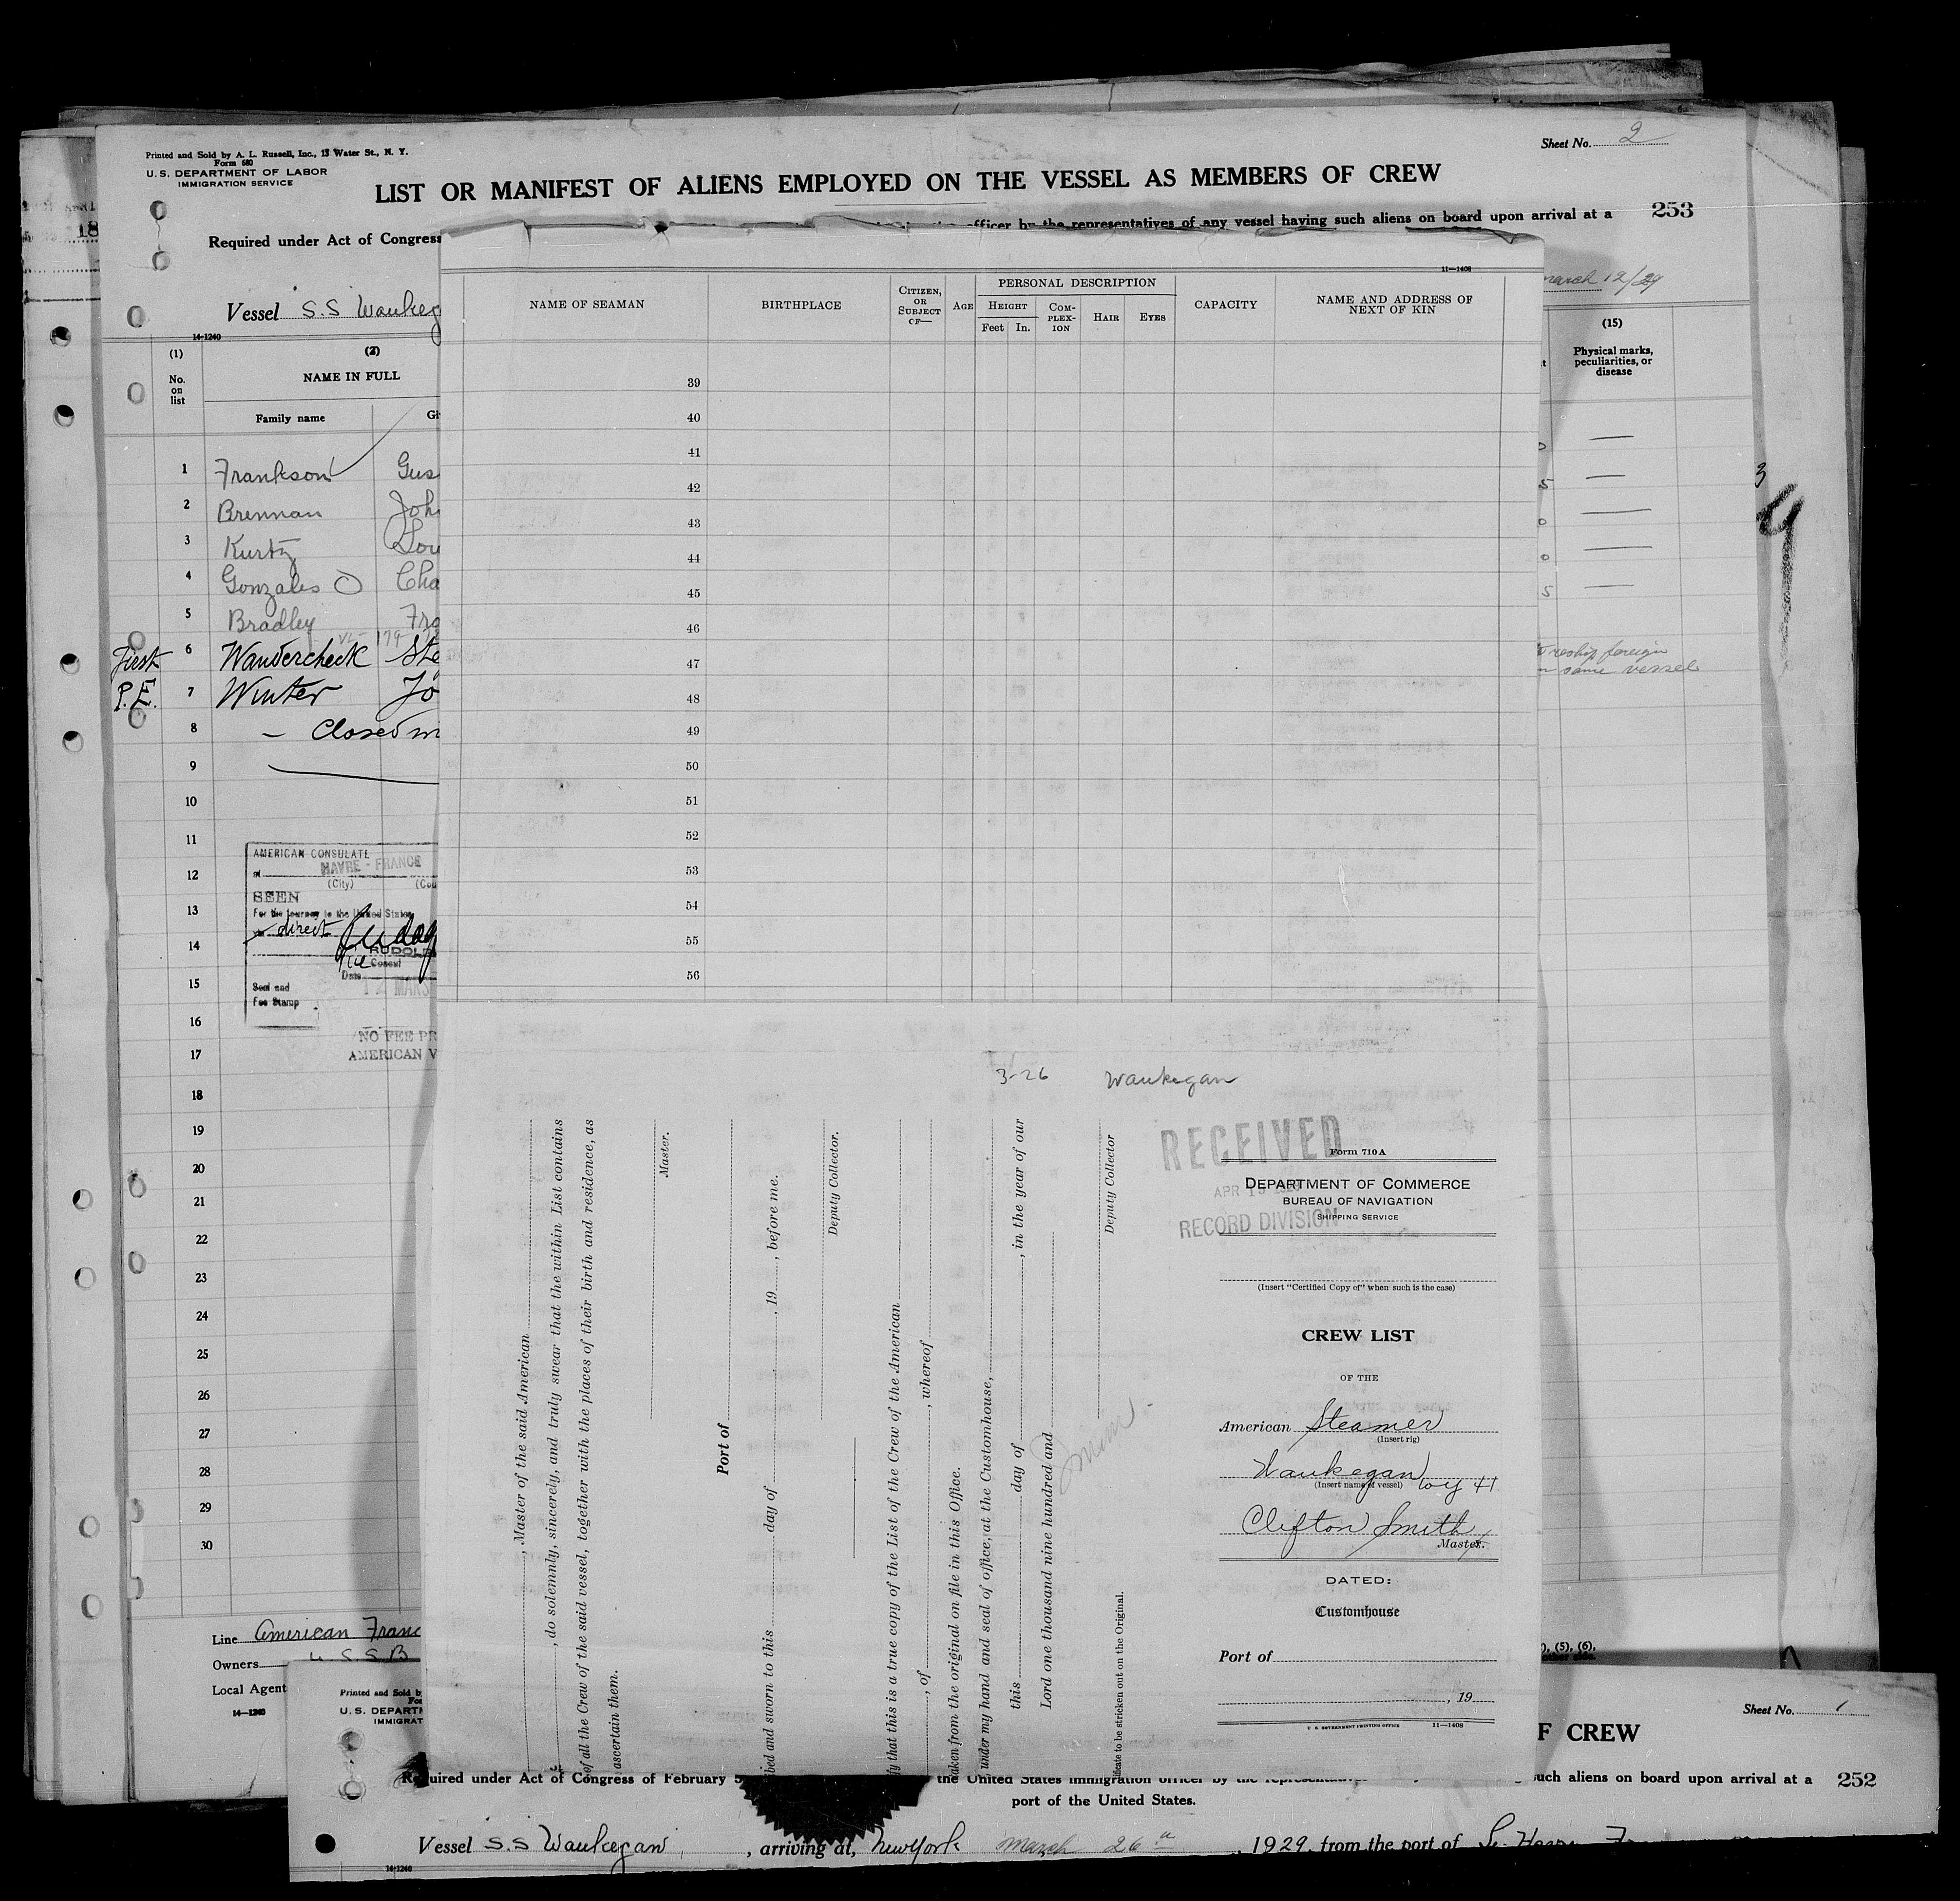 Printed and Sold by A. L. Russell, Inc., 15 Water St., N. Y.
Form 680
U.S. DEPARTMENT OF LABOR
IMMIGRATION SERVICE
Sheet No. 2
LIST OR MANIFEST OF ALIENS EMPLOYED ON THE VESSEL AS MEMBERS OF CREW
253
Required under Act of Congress
officer by the representatives of any vessel having such aliens on board upon arrival at a
Vessel S.S Waukeg
march 12/29
14-1240
(1)
No. on list
(2)
NAME IN FULL
Family name
(15)
Physical marks, peculiarities, or disease
1 Frankson Gus
2 Brennan Joh
3 Kurtz Lou
4 Gonzales Cha
5 Bradley Fra
First 6 Wandercheck Ste
P.E. 7 Winter Jo
8 — Closed
9
10
11
12
13
14
15
16
17
18
19
20
21
22
23
24
25
26
27
28
29
30
reship foreign
same vessel
AMERICAN CONSULATE
at HAVRE - FRANCE
(City)
SEEN
For the journey to the United States
via direct
RUDOL
Vice Consul
Date
12 MARS
Seal and
Fee Stamp
NO FEE PR
AMERICAN V
Line American Franc
Owners U.S.S.B
Local Agent
14—1240
11—1408
NAME OF SEAMAN
BIRTHPLACE
CITIZEN, OR SUBJECT OF—
AGE
PERSONAL DESCRIPTION
HEIGHT
Feet In.
COMPLEXION
HAIR
EYES
CAPACITY
NAME AND ADDRESS OF NEXT OF KIN
39
40
41
42
43
44
45
46
47
48
49
50
51
52
53
54
55
56
3-26 Waukegan
, Master of the said American
, do solemnly, sincerely, and truly swear that the within List contains
of all the Crew of the said vessel, together with the places of their birth and residence, as
ascertain them.
Master.
Port of
bed and sworn to this day of , 19 , before me.
Deputy Collector.
fy that this is a true copy of the List of the Crew of the American
, of , whereof
aken from the original on file in this Office.
under my hand and seal of office, at the Customhouse,
this day of , in the year of our
Lord one thousand nine hundred and
Deputy Collector
ficate to be stricken out on the Original.
RECEIVED
APR 15
RECORD DIVISION
Form 710 A
DEPARTMENT OF COMMERCE
BUREAU OF NAVIGATION
SHIPPING SERVICE
(Insert "Certified Copy of" when such is the case)
CREW LIST
OF THE
American Steamer
(Insert rig)
Waukegan voy 41
(Insert name of vessel)
Clifton Smith
Master.
DATED:
Customhouse
Port of
, 19
U. S. GOVERNMENT PRINTING OFFICE 11—1408
), (5), (6),
other side.
Printed and Sold b
U.S. DEPART
IMMIGRAT
Sheet No. 1
F CREW
Required under Act of Congress of February 5
the United States immigration officer by the
such aliens on board upon arrival at a
252
port of the United States.
Vessel S.S Waukegan, arriving at, New York march 26th, 1929, from the port of
14-1240